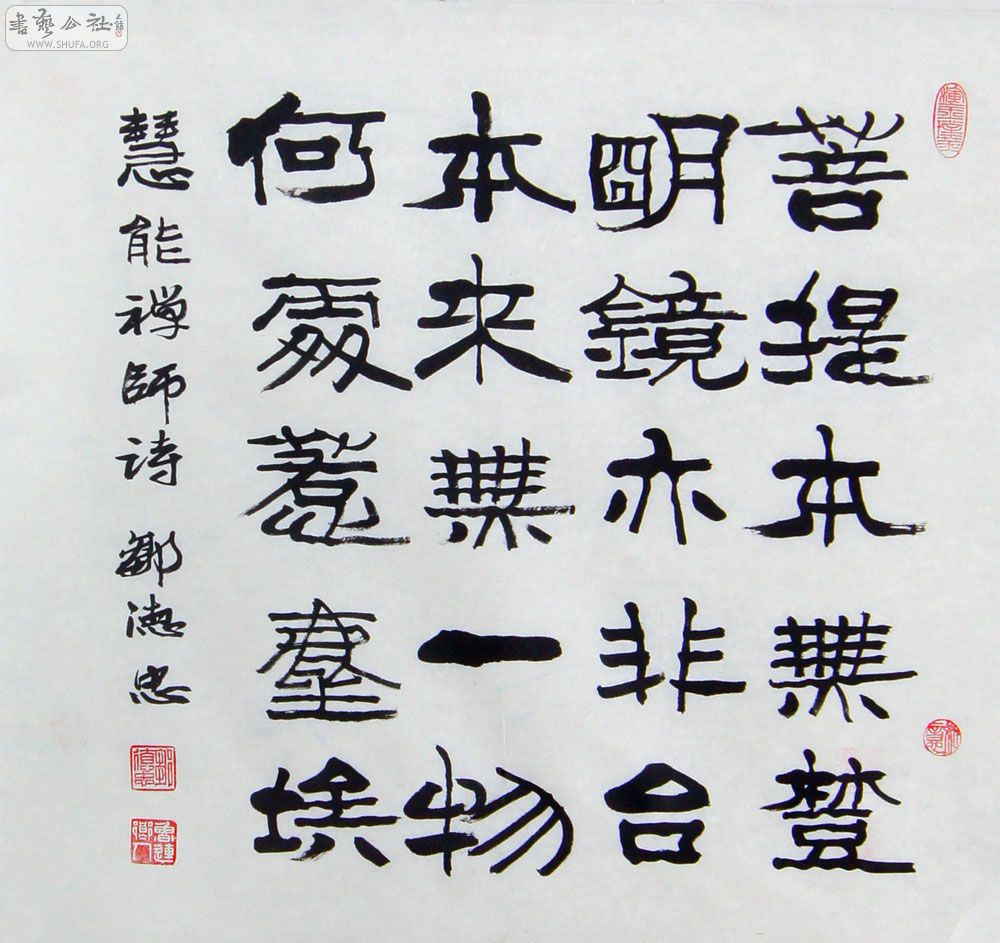 菩提本無䔲
明鏡亦非台
本來無一物
何處惹塵埃
慧能禅師诗 鄒德忠
書藝公社
WWW.SHUFA.ORG